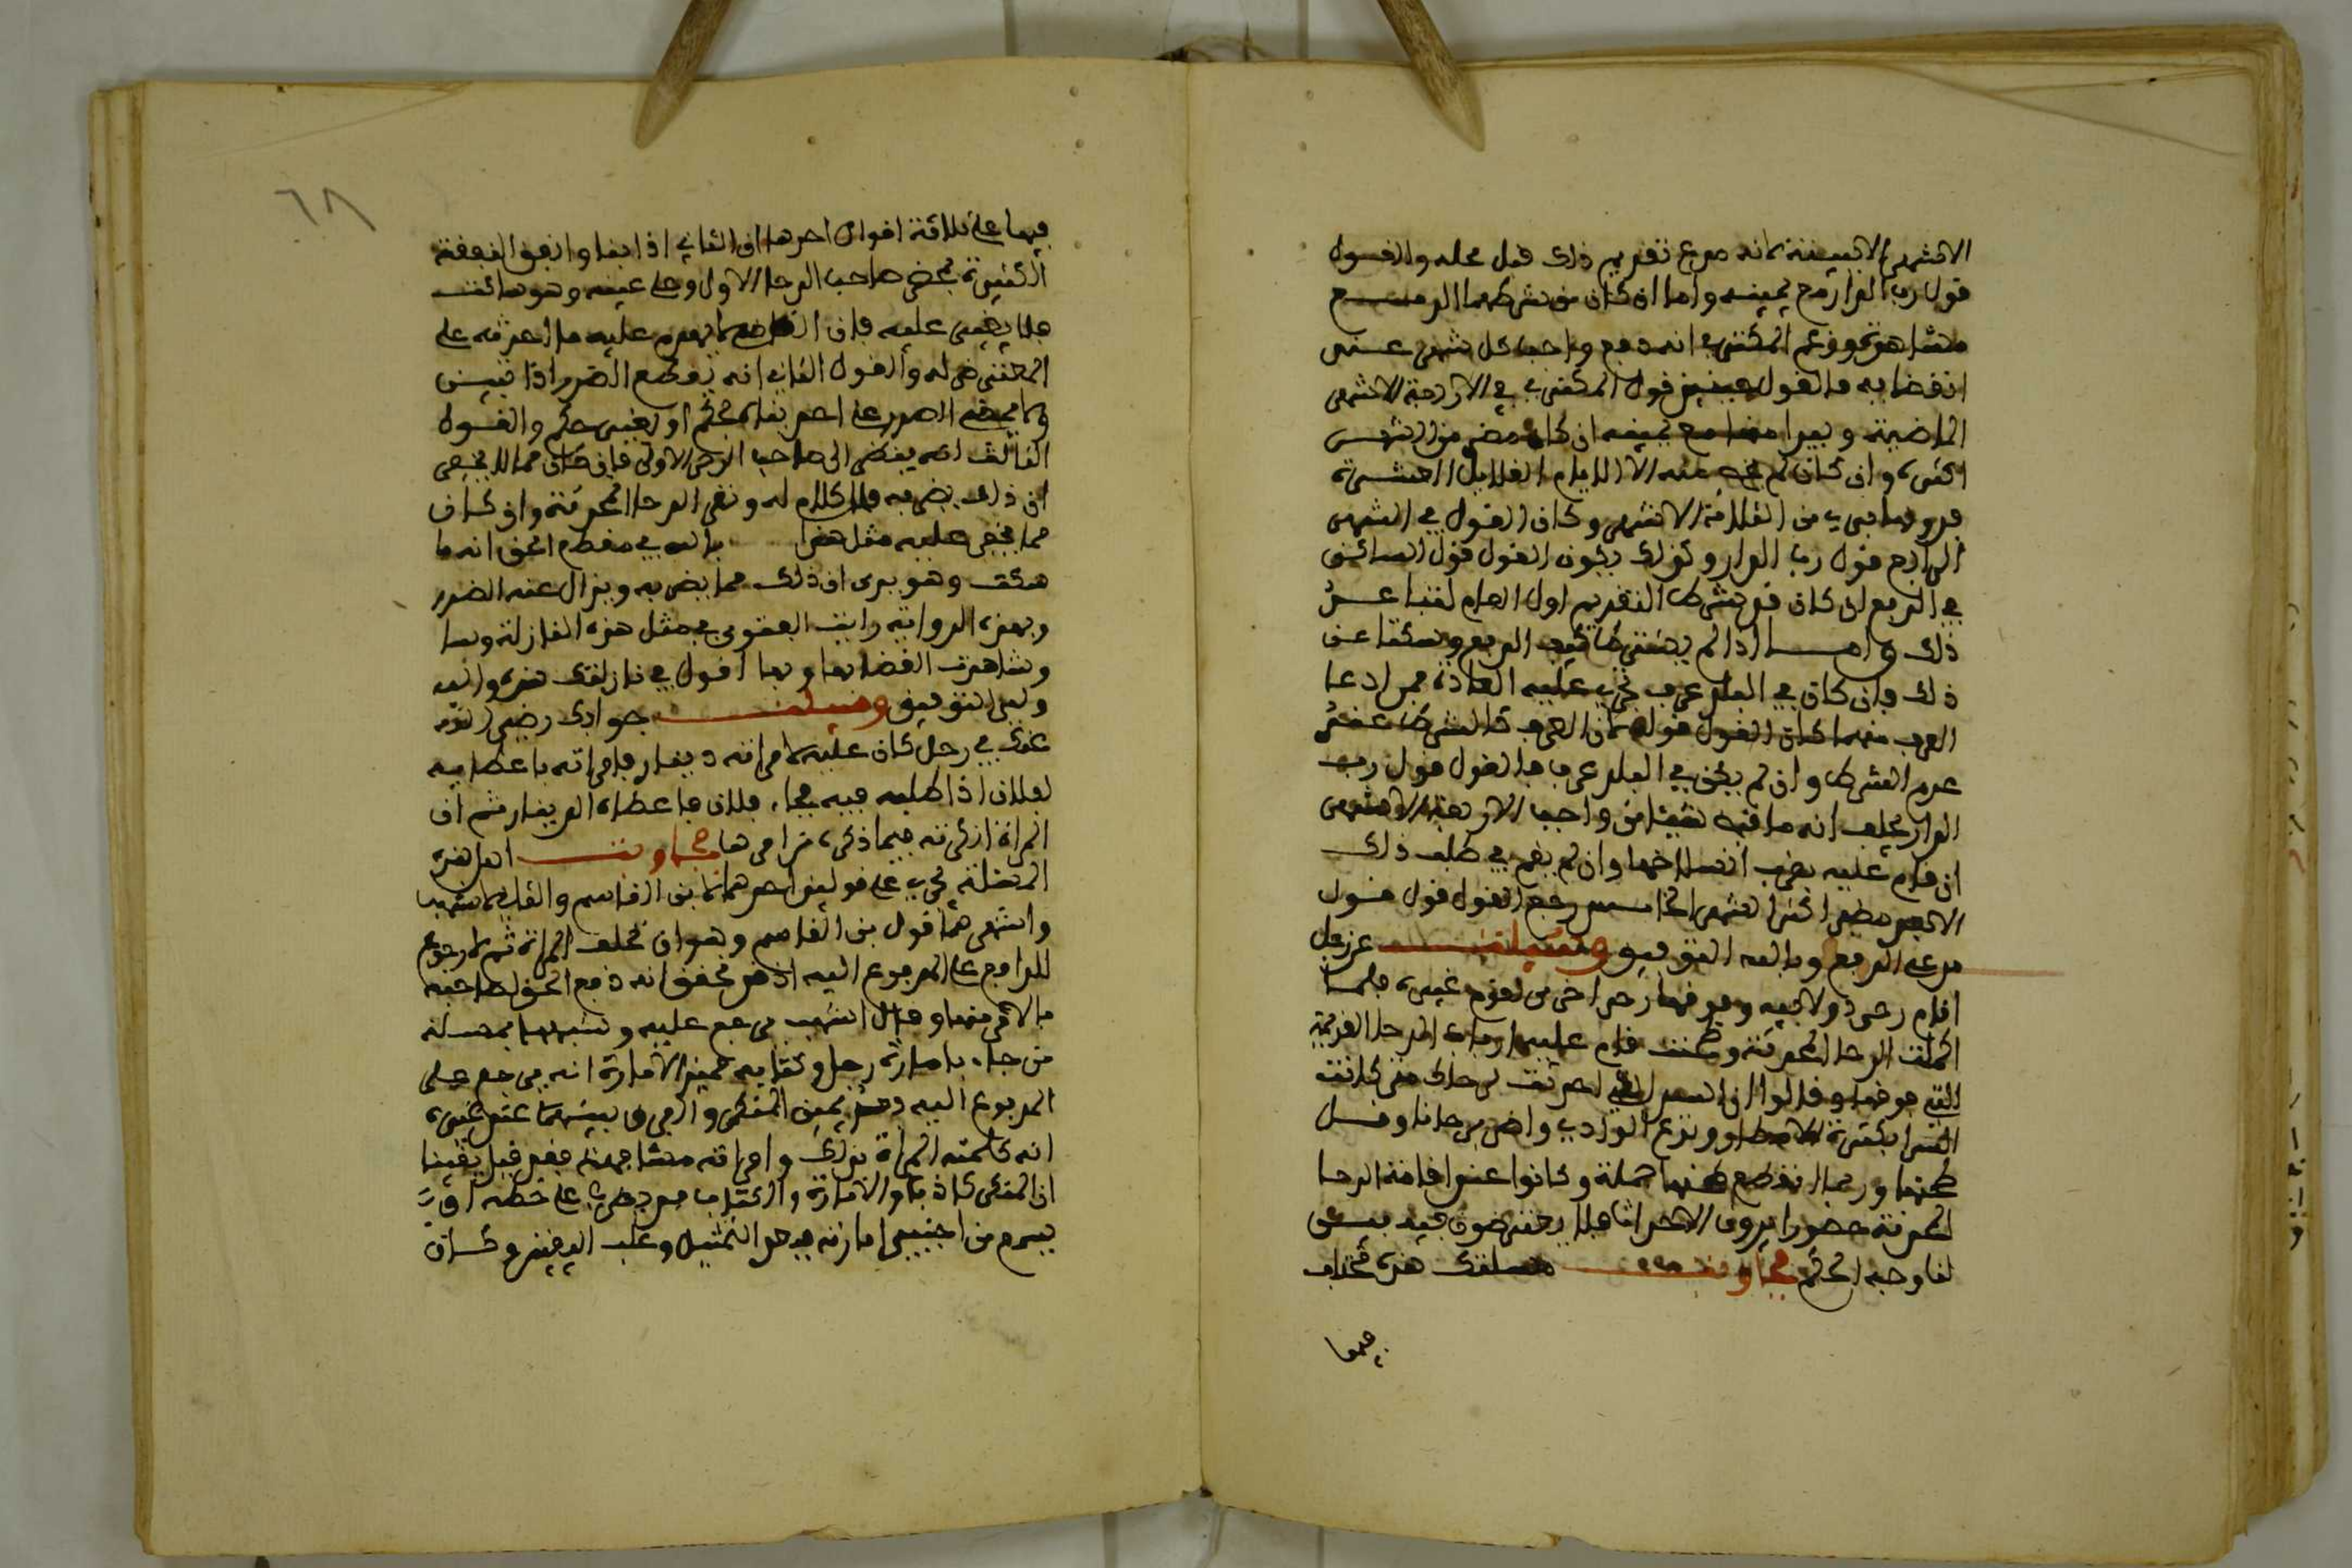 الاشهر الا ببينة لانه مدع تقديم ذلك قبل محله والقول
قول رب الدار مع يمينه واما ان كان من شرطهما الدفع
مشاهرة وزعم المكتري انه دفع واجب كل شهر عند
انقضايه فالقول قول المكتري في الاربعة الاشهر
الماضية ويبرا منها مع يمينه ان كان مضى من الشهر
اكثره وان كان لم يمض منه الا الايام القلايل العشرة
فدونها بري من الثلاثة الاشهر وكان القول في الشهر
الرابع قول رب الدار وكذلك يكون القول قول الساكن
في الربع ان كان قد شرط التقديم اول العام لقباعد
ذلك واما اذا لم يشترطا كيف الدفع وسكتا عن
ذلك فان كان في البلد عرف تجري عليه العادة فمن ادعا
العرف منهما كان القول قوله لان العرف كالشرط عند
عدم الشرط وان لم يكن في البلد عرف فالقول قول رب
الدار يحلف انه ما قبض شيئا من واجب الاربعة الاشهر
ان قام عليه بقرب انسلاخها وان لم يقم في طلب ذلك
الا بعد مضي اكثر الشهر الخامس رجع القول قول
مدعي الدفع وبالله التوفيق وسيلت عن رجل
اقام رحى في ولاجيه وفوقها رحى اخرى لقوم غيره فلما
اكملت الرحا المحدثة وطحنت قام عليه ارباب الرحا القديمة
التي فوقها وقالوا ان السد الذي احدثت لرحاك متى كانت
الشتا بكثرة الامطار ورجع الوادي واضر برحانا وقل
طحنها وربما انقطع طحنها جملة وكانوا عند اقامة الرحا
المحدثة حضورا يرون الاحداث فلا يعترضون فيه بين
لنا وجه الحكم فجاوب مسلتك هذه تختلف
فيها
٦٨
فيها على ثلاثة اقوال احدها ان الثاني اذا بنا وانفق النفقة
الكثيرة بمحضر صاحب الرحا الاول وعلى عينه وهو ساكت
فلا يغير عليه فان القاضي لا يهدم عليه ما احدثه على
المعترض له والقول الثاني انه يقطع الضرر اذا تبين
ولا يمضي الضرر على احد بقديم او بغير حكم والقول
الثالث انه ينظر الى صاحب الرحى الاولى فان كان مما لا يخفى
ان ذلك يضر به فلا كلام له وتقر الرحا المحدثة وان كان
مما يخفى عليه مثل هذا بالله في مقطع الحق انه ما
سكت وهو يرى ان ذلك مما يضر به ويزال عنه الضرر
وبهذه الرواية رايت الفتوى في مثل هذه النازلة وبها
وشاهدت القضا بها وبها اقول في نازلتك هذه والله
ولي التوفيق وسيلت جوابك رضي الله
عنك في رجل كان عليه لامراته دينار فامراته باعطايه
لفلان اذا طلبه فيه فجا فلان فاعطاه الدينار ثم ان
المراة انكرته فيما ذكره من امرها فجاوب اصل هذه
المسئلة يجري على قولين احدهما لابن القاسم والثاني لاشهب
واشهرهما قول بن القاسم وهو ان تحلف المراة ثم لا رجوع
للدافع على المدفوع اليه اذ هو محقق انه دفع الحق لصاحبه
بالامر منها وقال اشهب يرجع عليه وشبهها بمسئلة
من جاء بامارة رجل وكتابه فميز الامارة انه يرجع على
المدفوع اليه بعد يمين المنكر والفرق بينهما عند غيره
انه كلمته المراة بذلك وامراته مشافهة فهو قبل يقينا
ان المنكر كاذبا والامارة والكتاب قد يطرى على خطه او
يسمع من اجنبي امارته فيدخل التمثيل وغلب اليقين وكان